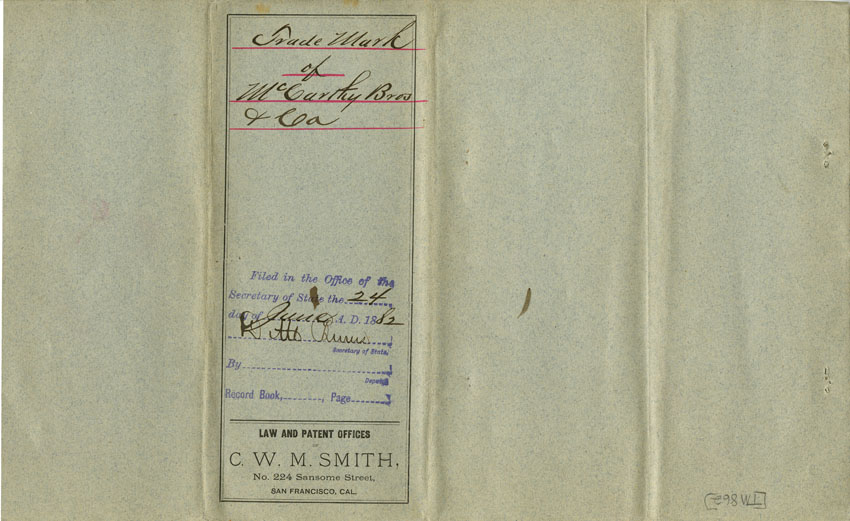 Trade Mark
of
McCarthy Bros
& Co
Filed in the Office of the
Secretary of State the 24
day of June A. D. 1882
Secretary of State,
By
Deputy
Record Book, , Page
LAW AND PATENT OFFICES
C. W. M. SMITH,
No. 224 Sansome Street,
SAN FRANCISCO, CAL.